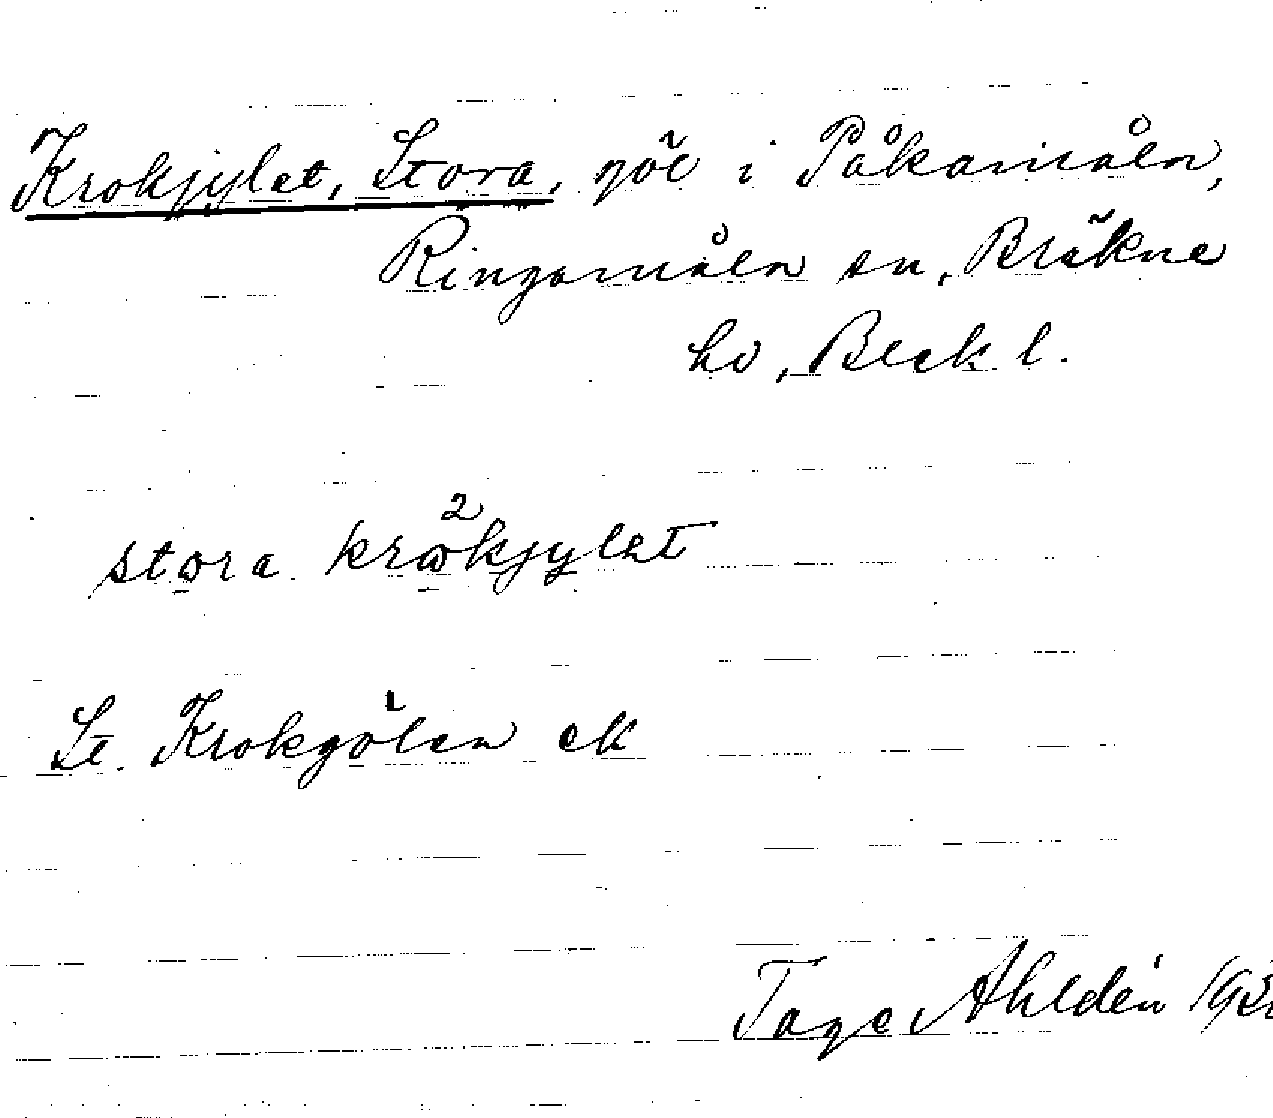 Krokjylet, Stora, göl i Påkamåln,
Ringamåln sn, Bräkne
hd, Blek l.
2
stora kråkjylet
St. Krokgölen ek
Tage Ahldén 193